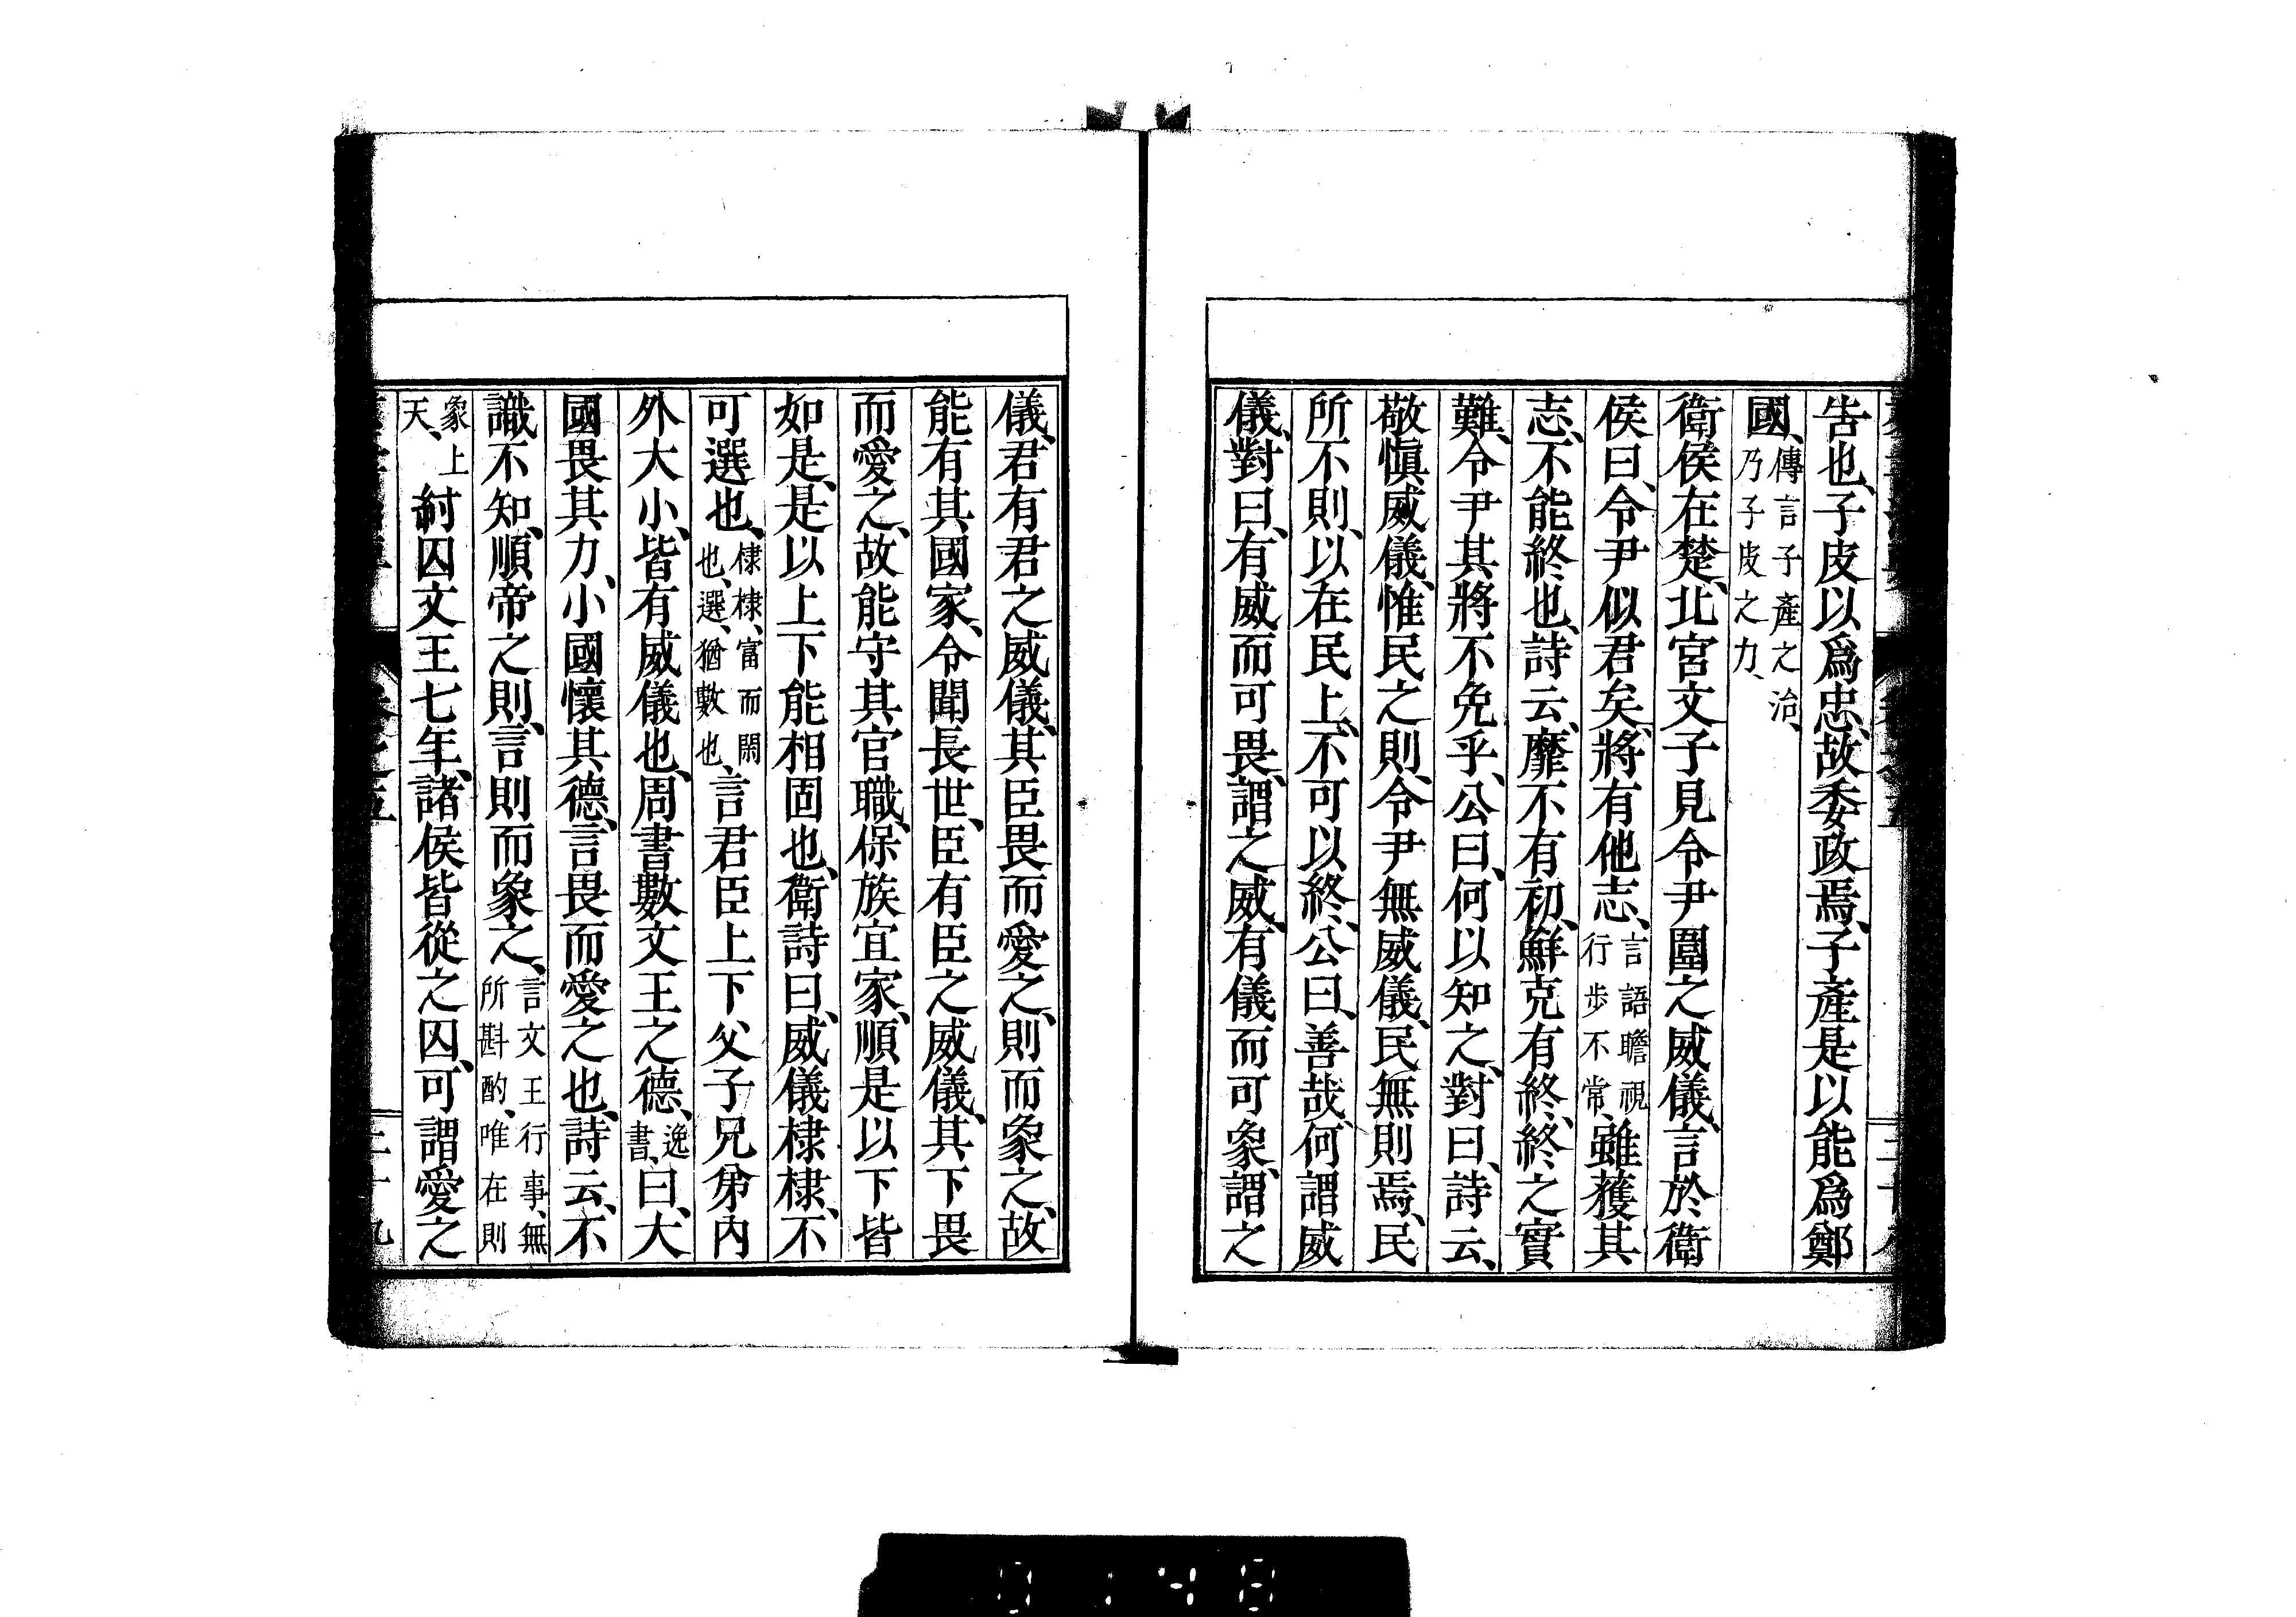 告也、子皮以爲忠、故委政焉、子產是以能爲鄭
國、傳言子產之治、乃子皮之力、
衛侯在楚、北宮文子見令尹圍之威儀、言於衛
侯曰、令尹似君矣、將有他志、言語瞻視行步不常、雖獲其
志、不能終也、詩云、靡不有初、鮮克有終、終之實
難、令尹其將不免乎、公曰、何以知之、對曰、詩云、
敬愼威儀、惟民之則、令尹無威儀、民無則焉、民
所不則、以在民上、不可以終、公曰、善哉、何謂威
儀、對曰、有威而可畏、謂之威、有儀而可象、謂之
儀、君有君之威儀、其臣畏而愛之、則而象之、故
能有其國家、令聞長世、臣有臣之威儀、其下畏
而愛之、故能守其官職、保族宜家、順是以下皆
如是、是以上下能相固也、衛詩曰、威儀棣棣、不
可選也、棣棣、富而閑也、選、猶數也、言君臣上下父子兄弟內
外大小、皆有威儀也、周書數文王之德、逸書、曰、大
國畏其力、小國懷其德、言畏而愛之也、詩云、不
識不知、順帝之則、言則而象之、言文王行事、無所斟酌、唯在則
象上天、紂囚文王七年、諸侯皆從之囚、可謂愛之
0148